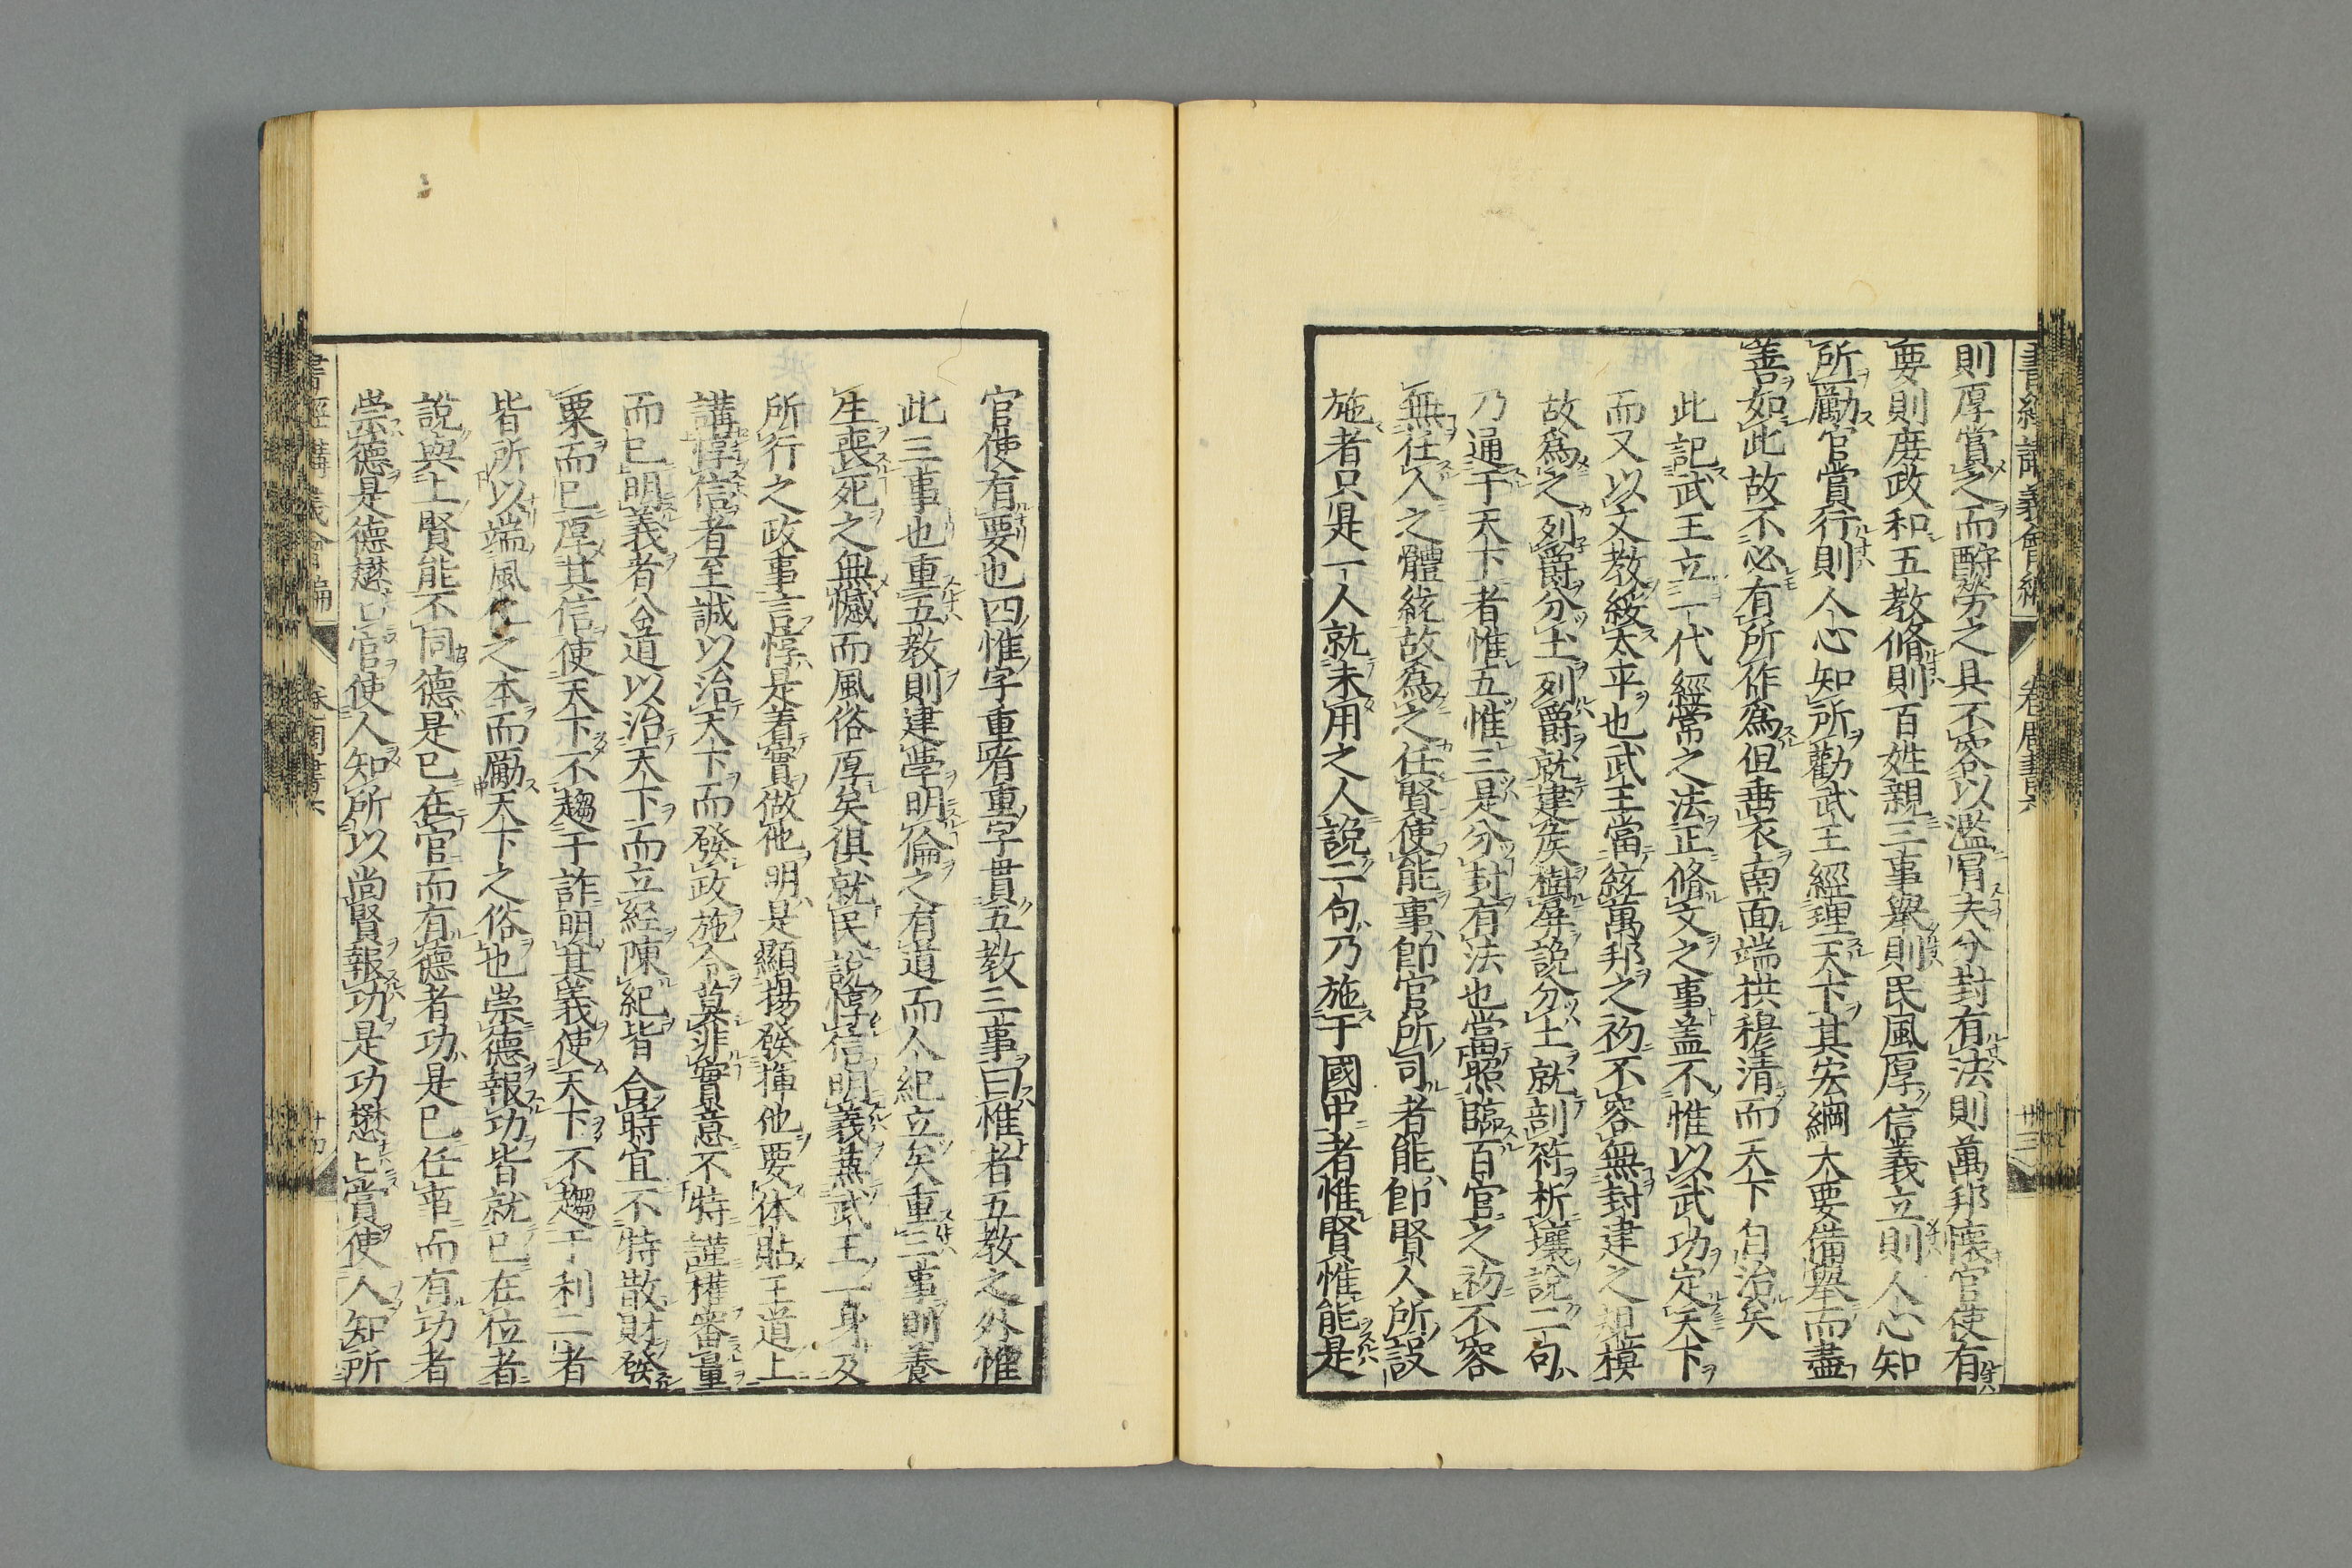 則厚賞之而酧労之具不容以濫冒夫分封有法則萬邦懐官使有
要則庶政和五教脩則百姓親三事舉則民風厚信義立則人心知
所勵官賞行則人心知所勸武王經理天下其宏綱大要備舉而盡
善如此故不必有所作爲但垂衣南面端拱穆清而天下自治矣
此記武王立一代經常之法正脩文之事盖不惟以武功定天下
而又以文教綏太平也武王當綂萬邦之初不容無封建之規模
故爲之列爵分土列爵就建矦樹屏說分土就剖符析壤說二句
乃通于天下者惟五惟三是分封有法也當照臨百官之初不容
無任人之體統故爲之任賢使能事卽官所司者能卽賢人所設
施者只是一人就未用之人說二句乃施于國中者惟賢惟能是
官使有要也四惟字重看重字貫五教三事曰惟者五教之外惟
此三事也重五教則建學明倫之有道而人紀立矣重三事則養
生喪死之無憾而風俗厚矣俱就民說惇信明義蕉武王一身及
所行之政事言惇是着實做他明是顯揚發揮他要体貼王道上
講惇信者至誠以治天下而發政施令莫非實意不特謹權審量
而已明義者全道以治天下而立経陳紀皆合時宜不特散財發
粟而已厚其信使天下不趨于詐明其義使天下不趨于利二者
皆所以端風化之本而勵天下之俗也崇德報功皆就已在位者
說與上賢能不同德是已在官而有德者功是已任事而有功者
崇德是德懋懋官使人知所以尚賢報功是功懋懋賞使人知所
書經講義會編
卷周書六
廿三
書經講義會編
卷周書六
廿四